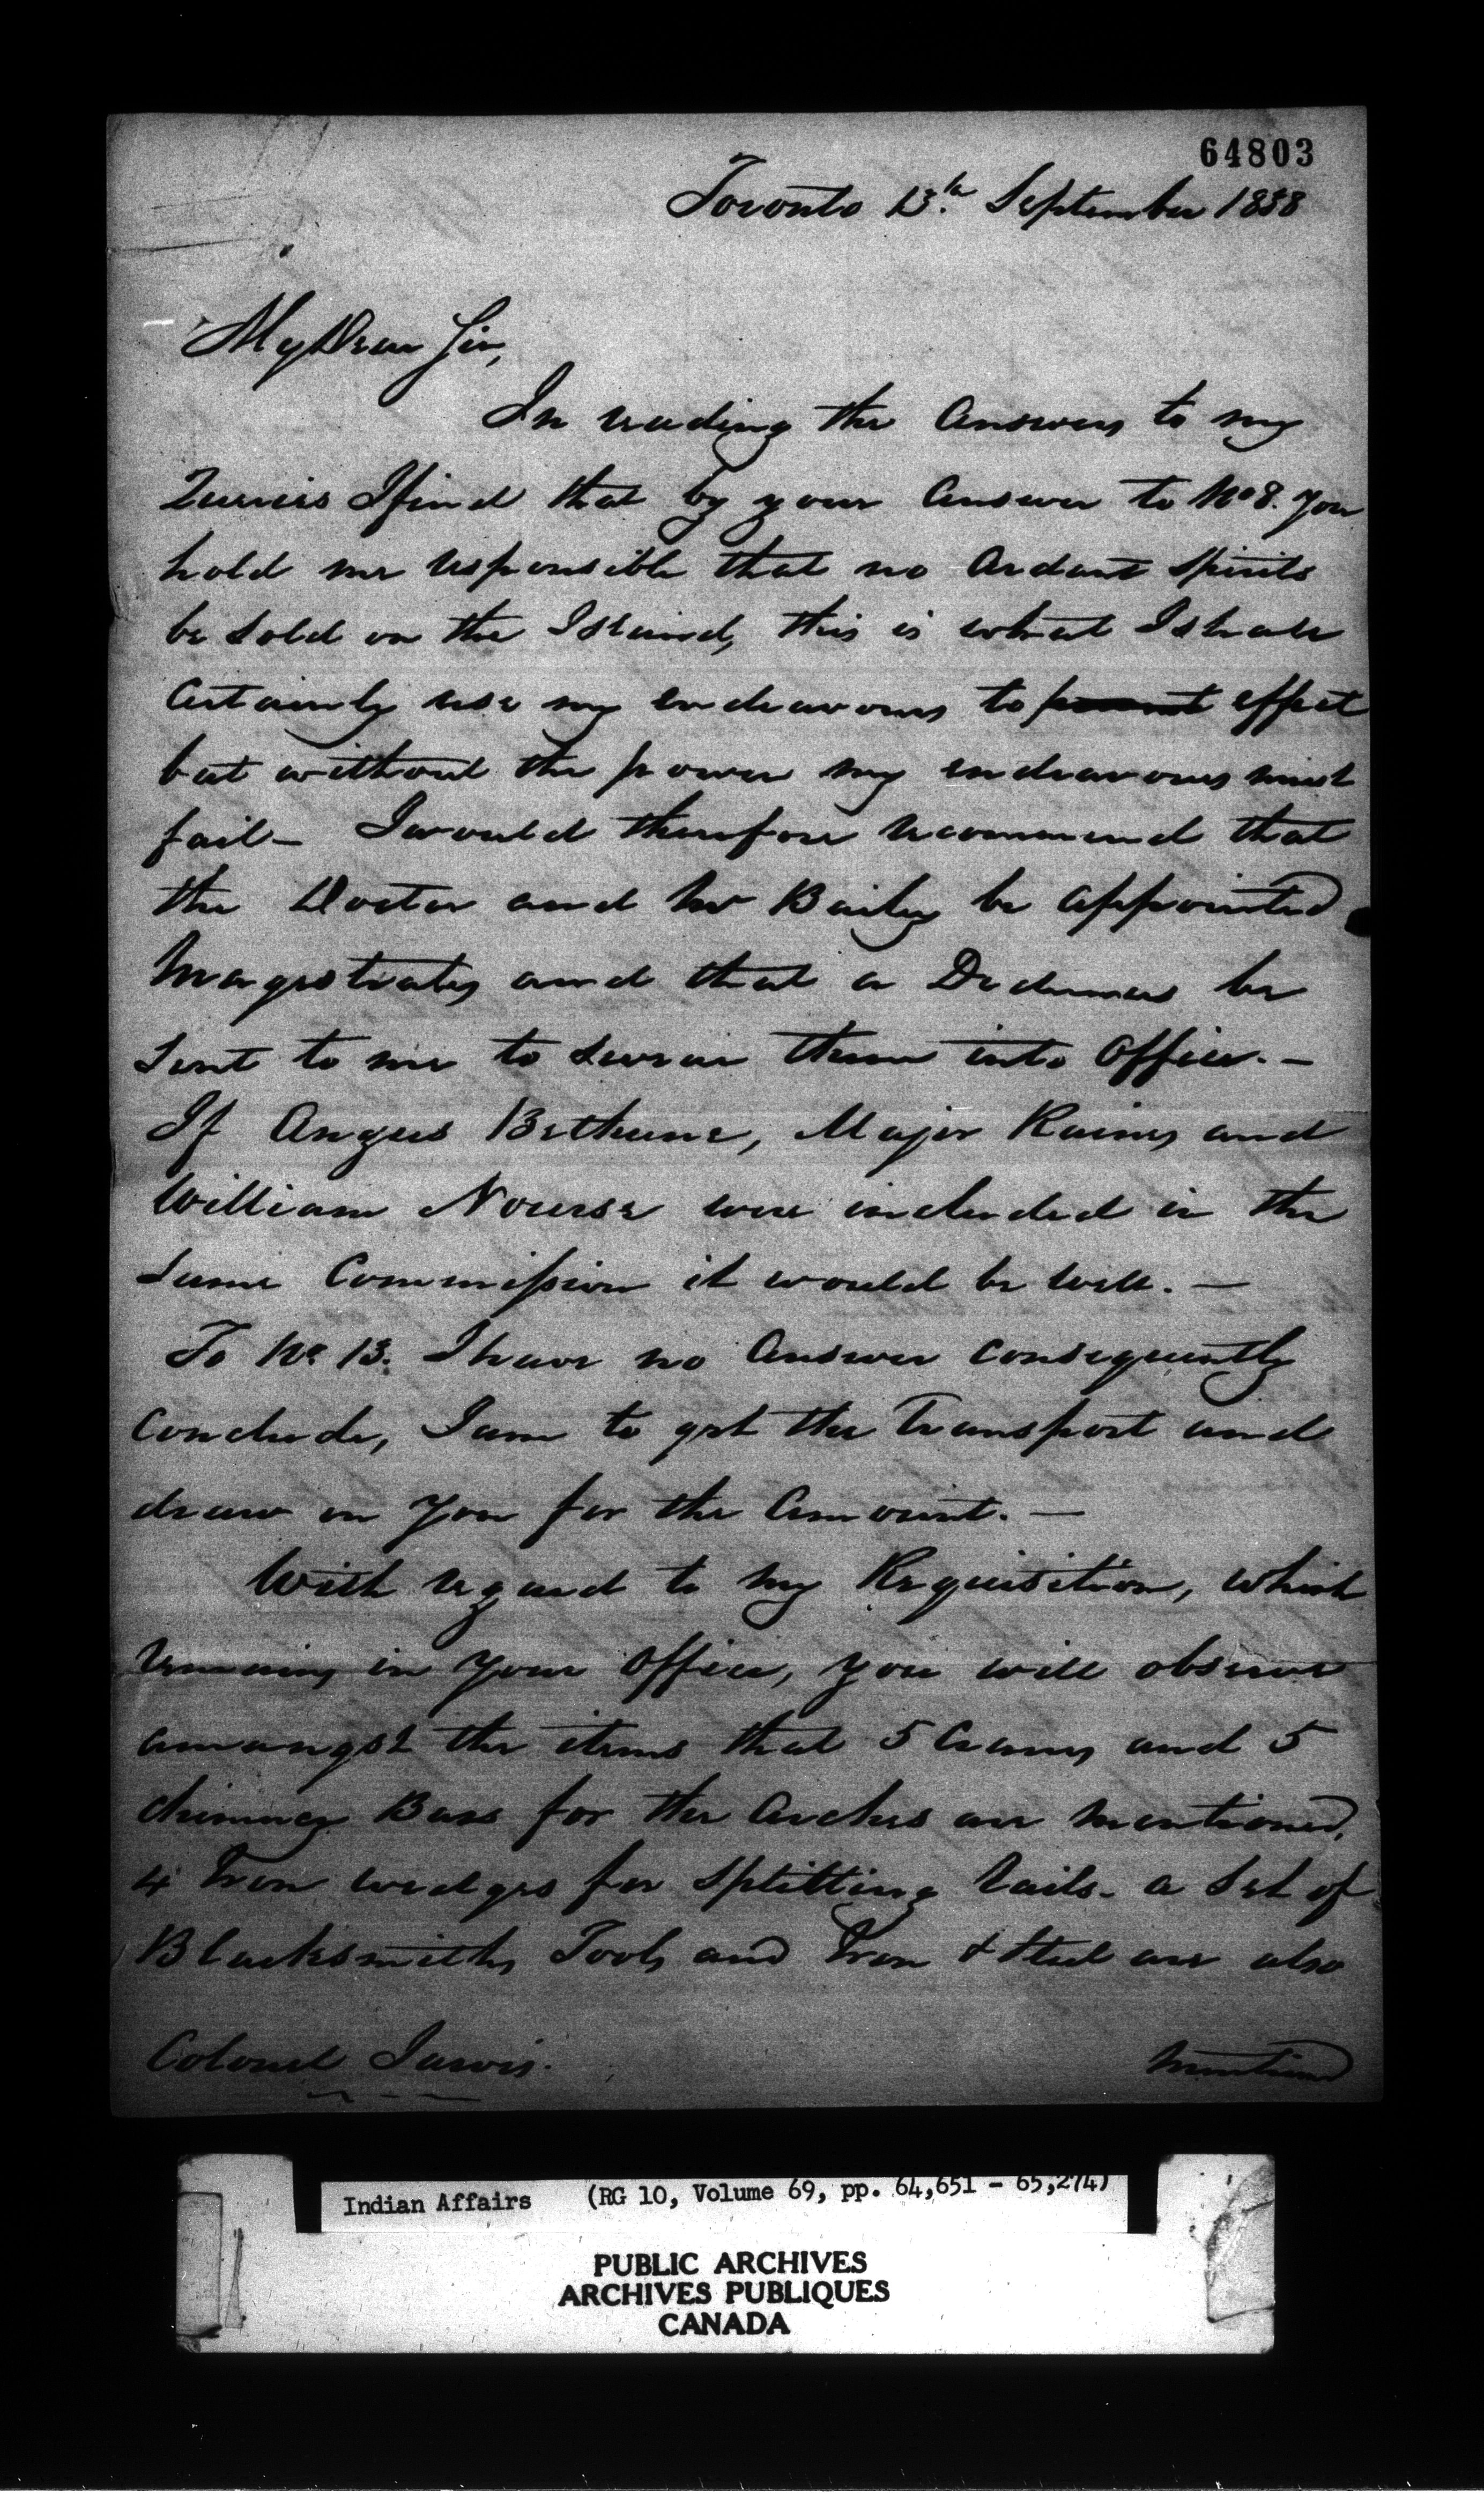 64803
Toronto 13th September 1838
My Dear Sir,
In reading the Answers to my
Queries I find that by your Answer to No 8. You
hold me responsible that no Ardant Spirits
be Sold on the Island, this is what I shall
Certainly use my endeavours to effect
but without the power my endeavours must
fail – I would therefore recommend that
the Doctor and Mr Baily be appointed
Magistrates and that a Dedimus be
Sent to me to Swear them into Office. –
If Angus Bethune, Major Rains and
William Nourse were included in the
Same Commission it would be well. –
To No 13. I have no Answer consequently
Conclude, I am to get the Transport and
draw on You for the Amount. –
With regard to my Requisition, which
remains in Your Office, you will observe
amongst the items that 5 Cranes and 5
chimney Bars for the Arches are mentioned,
4 Iron wedges for Splitting rails – a Set of
Blacksmiths Tools and Iron & Steel are also
Colonel Jarvis.
mentioned
Indian Affairs (RG 10, Volume 69, pp. 64,651 - 65,274)
PUBLIC ARCHIVES
ARCHIVES PUBLIQUES
CANADA